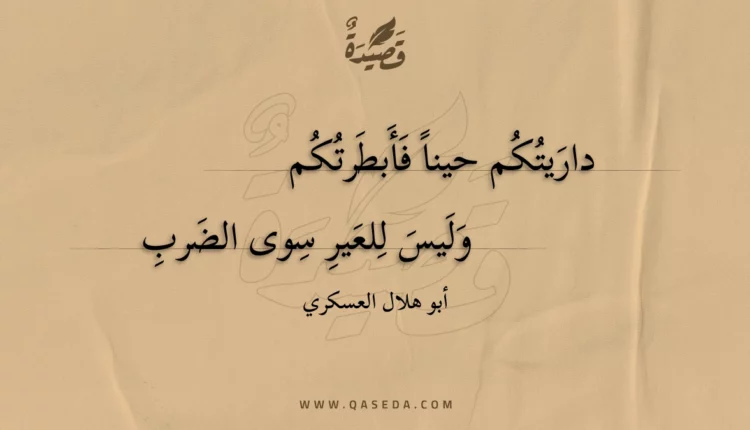 قَصِيدَةٌ
دارَيتُكُم حيناً فَأَبطَرتُكُم
وَلَيسَ لِلعَيرِ سِوى الضَربِ
أبو هلال العسكري
WWW.QASEDA.COM